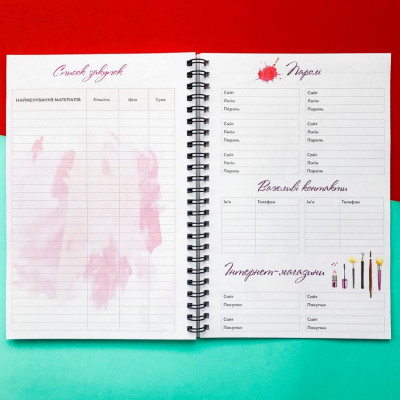 Список закупок
НАЙМЕНУВАННЯ МАТЕРІАЛІВ Кількість Ціна Сума
Паролі
Сайт Сайт
Логін Логін
Пароль Пароль
Сайт Сайт
Логін Логін
Пароль Пароль
Сайт Сайт
Логін Логін
Пароль Пароль
Важливі контакти
Ім'я Телефон Ім'я Телефон
Інтернет-магазини
Сайт Сайт
Покупки Покупки
Сайт Сайт
Покупки Покупки